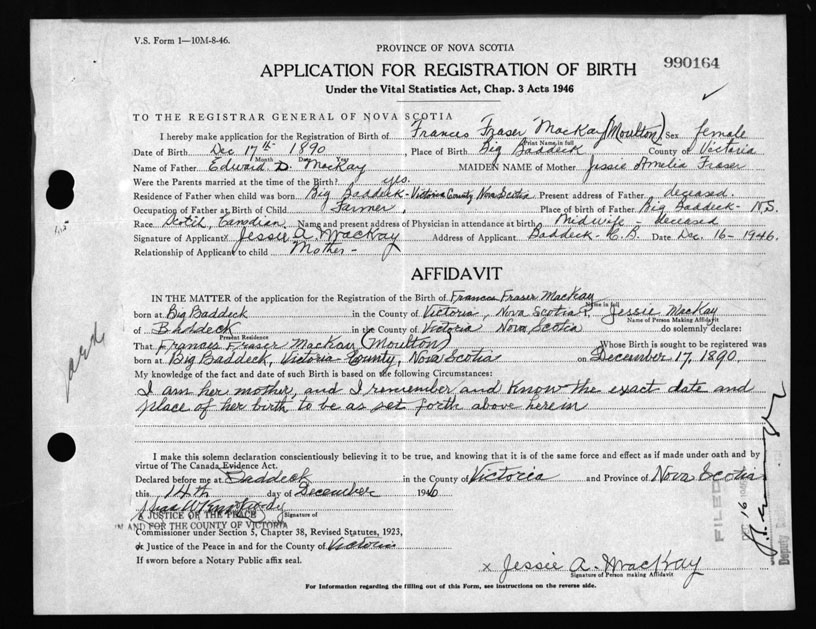 V.S. Form 1—10M-8-46.
PROVINCE OF NOVA SCOTIA
990164
APPLICATION FOR REGISTRATION OF BIRTH
Under the Vital Statistics Act, Chap. 3 Acts 1946
TO THE REGISTRAR GENERAL OF NOVA SCOTIA
I hereby make application for the Registration of Birth of Francis Fraser MacKay (Moulton) Sex female
Print Name in full
Date of Birth Dec 17th 1890, Place of Birth Big Baddeck County of Victoria
Month Day Year
Name of Father Edward D. MacKay MAIDEN NAME of Mother Jessie Amelia Fraser
Were the Parents married at the time of the Birth? yes.
Residence of Father when child was born Big Baddeck - Victoria County Nova Scotia Present address of Father deceased.
Occupation of Father at Birth of Child Farmer, Place of birth of Father Big Baddeck - N.S.
Race Scotch, Canadian Name and present address of Physician in attendance at birth Midwife - deceased
Signature of Applicant x Jessie A. MacKay Address of Applicant Baddeck - C.B. Date Dec. 16 - 1946.
Relationship of Applicant to child Mother -
AFFIDAVIT
IN THE MATTER of the application for the Registration of the Birth of Frances Fraser MacKay
Name in full
born at Big Baddeck in the County of Victoria, Nova Scotia I, Jessie MacKay
Name of Person Making Affidavit
of Baddeck in the County of Victoria Nova Scotia do solemnly declare:
Present Residence
That Frances Fraser MacKay (Moulton) Whose Birth is sought to be registered was
born at Big Baddeck, Victoria County, Nova Scotia on December 17, 1890.
My knowledge of the fact and date of such Birth is based on the following Circumstances:
I am her mother, and I remember and know the exact date and
place of her birth to be as set forth above herein
I make this solemn declaration conscientiously believing it to be true, and knowing that it is of the same force and effect as if made under oath and by
virtue of The Canada Evidence Act.
Declared before me at Baddeck in the County of Victoria and Province of Nova Scotia
this 14th day of December 1946
A JUSTICE OF THE PEACE Signature of
IN AND FOR THE COUNTY OF VICTORIA
Commissioner under Section 5, Chapter 38, Revised Statutes, 1923,
or Justice of the Peace in and for the County of Victoria
If sworn before a Notary Public affix seal.
x Jessie A. MacKay
Signature of Person making Affidavit
For Information regarding the filling out of this Form, see instructions on the reverse side.
FILED
Deputy